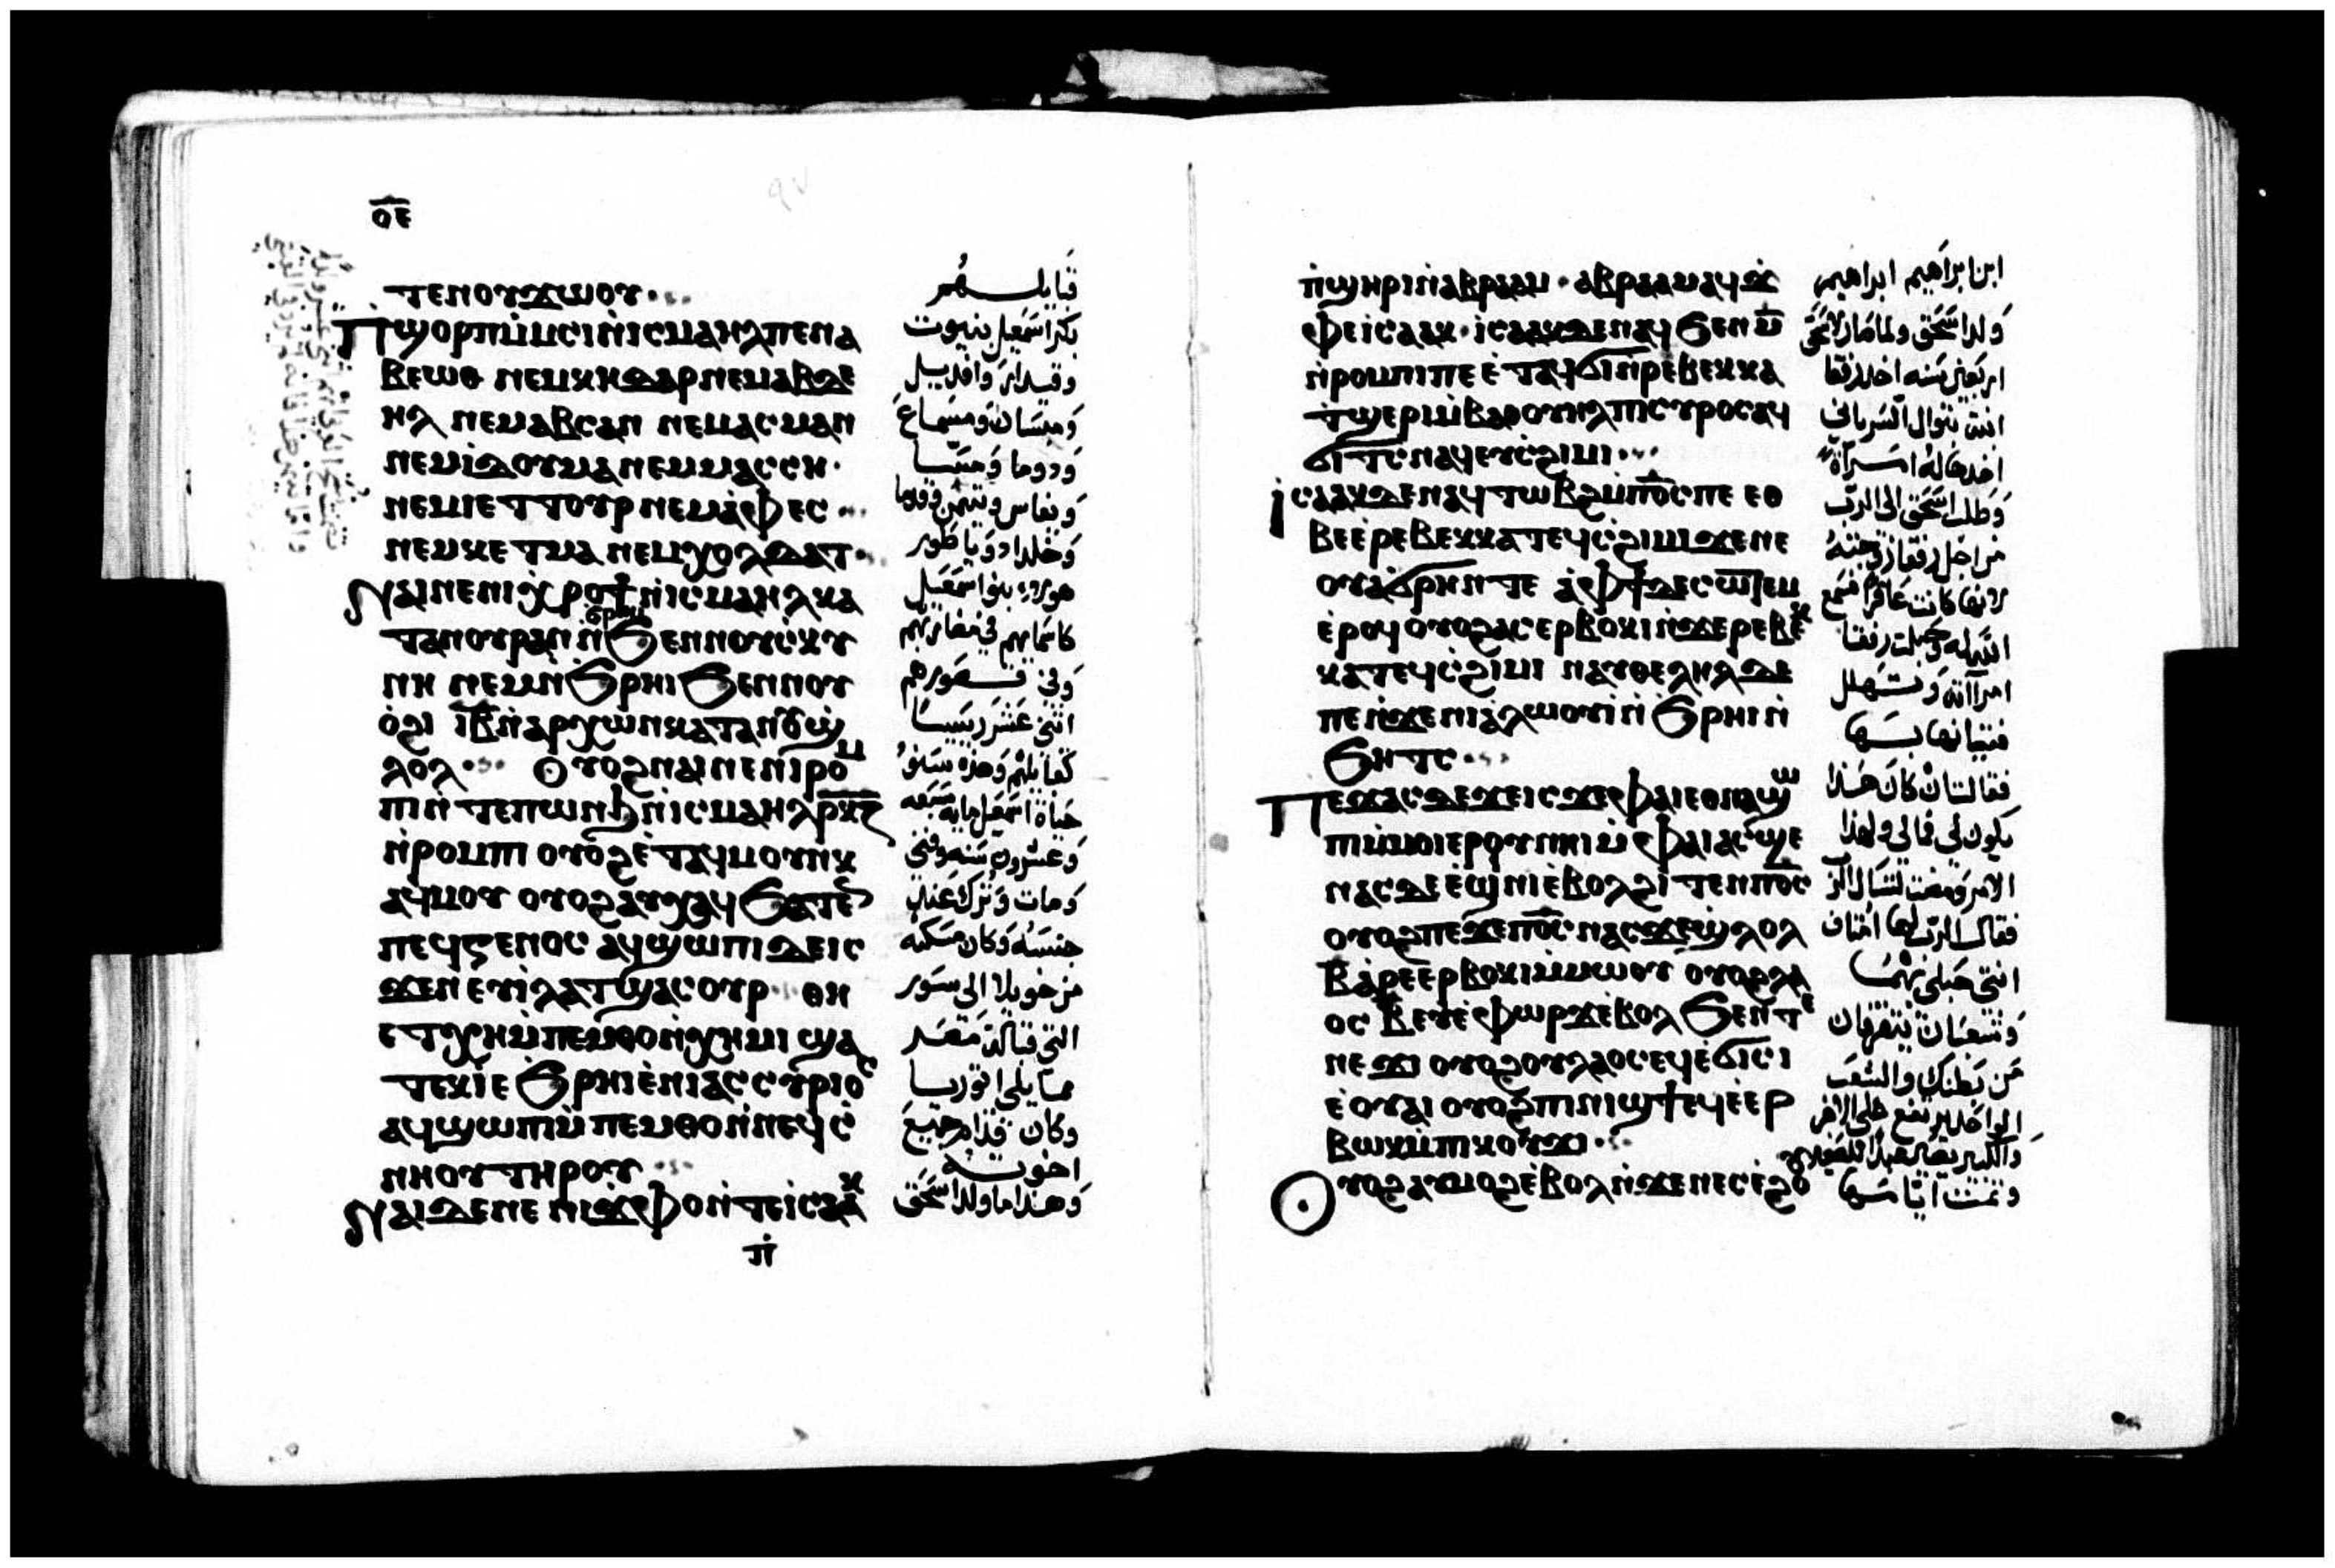 ⲟⲉ
ⲧⲉⲛⲟⲩϫⲱⲟⲩ
ⲡϣⲟⲣⲡⲙ̇ⲙⲓⲥⲓⲛ̇ⲓⲥⲙⲁⲏⲗⲡⲉⲛⲁ
ⲃⲉⲱⲑ ⲛⲉⲙⲕⲏⲇⲁⲣⲛⲉⲙⲁⲃⲇⲉ
ⲏⲗ ⲛⲉⲙⲁⲃⲥⲁⲛ ⲛⲉⲙⲁⲥⲙⲁⲛ
ⲛⲉⲙⲓ̇ⲇⲟⲩⲙⲁⲛⲉⲙⲙⲁⲥⲥⲏ
ⲛⲉⲙⲓⲉⲧⲧⲟⲩⲣⲛⲉⲙⲁ̇ⲫⲉⲥ
ⲛⲉⲙⲕⲉⲧⲙⲁⲛⲉⲙⲭⲟⲗⲇⲁⲧ
ⲛⲁⲓⲛⲉⲛⲓϫ̇ⲣⲟϯⲛ̇ⲓⲥⲙⲁⲏⲗⲕⲁ
ⲧⲁⲛⲟⲩⲣⲁⲛⲛ̇ϧⲣⲏⲓϧⲉⲛⲛⲟⲩⲥ̇ⲕⲩ
ⲛⲏ ⲛⲉⲙⲛ̇ϧⲣⲏⲓϧⲉⲛⲛⲟⲩ
ⲟ̇ϩⲓ ⲓ̅ⲃ̅ⲛ̇ⲁⲣⲭⲱⲛⲕⲁⲧⲁⲛⲟⲩϣ̇
ⲗⲟⲗ ⲟⲩⲟϩⲛⲁⲓⲛⲉⲛⲓⲣⲟⲙ
ⲡⲓⲛ̇ⲧⲉⲡⲱⲛϧⲛ̇ⲓⲥⲙⲁⲏⲗⲣ̅ⲕ̅ⲍ̅
ⲛ̇ⲣⲟⲙⲡⲓ ⲟⲩⲟϩⲉ̇ⲧⲁϥⲙⲟⲩⲛⲕ
ⲁϥⲙⲟⲩ ⲟⲩⲟϩⲁⲩⲭⲁϥϧⲁⲧⲉⲛ
ⲡⲉϥⲅⲉⲛⲟⲥ ⲁϥϣⲱⲡⲓⲇⲉⲓⲥ
ϫⲉⲛⲉⲩⲓ̇ⲗⲁⲧϣⲁⲥⲟⲩⲣ ⲑⲏ
ⲉⲧⲭⲏⲙ̇ⲡⲉⲙⲑⲟⲛ̇ⲭⲏⲙⲓ ϣⲁ
ⲧⲉⲕⲓ̇ⲉ ϧⲣⲏⲓⲉ̇ⲛⲓⲁⲥⲥⲩⲣⲓⲟⲥ
ⲁϥϣⲱⲡⲓⲙ̇ⲡⲉⲙⲑⲟⲛ̇ⲛⲉϥⲥ̇
ⲛⲏⲟⲩⲧⲏⲣⲟⲩ
ⲛⲁⲓⲇⲉⲛⲉ ⲛⲓϫ̇ⲫⲟⲛ̇ⲧⲉⲓⲥⲁⲁⲕ
ⲡ̇
قبايلهم
بكر اسمعيل بنيوت
وقيدار وافديبل
ومبسان ومسماع
ودوما ومسا
وحلدا دويا طور
هولاء بنوا اسمعيل
كاسمايهم في مضاربهم
وفي قصورهم
اثني عشر رييسا
كقبايلهم وهذه سنو
حياة اسمعيل مايه سبعه
وعشرون سنه وفني
ومات وترك عند
جنسه وكان مسكنه
من خويلا الى سور
التي قبالة مصر
مما يلي اثوريا
وكان قدام جميع
اخوته
وهذا ما ولد اسحق
ⲡ̇ϣⲏⲣⲓⲛ̇ⲁⲃⲣⲁⲁⲙ ⲁⲃⲣⲁⲁⲙⲁϥϫ̇
ⲫⲉⲓⲥⲁⲁⲕ ⲓⲥⲁⲁⲕⲇⲉⲛⲁϥϧⲉⲛⲙ̅
ⲛ̇ⲣⲟⲙⲡⲓⲡⲉ ⲉ̇ⲧⲁϥϭⲓⲛ̇ⲣⲉⲃⲉⲕⲕⲁ
ⲧ̇ϣⲉⲣⲓⲙ̇ⲃⲁⲑⲟⲩⲏⲗⲡⲓⲥⲩⲣⲟⲥⲁϥ
ϭⲓⲧⲥⲛⲁϥⲉⲩⲥ̇ϩⲓⲙⲓ
ⲓ̇ⲥⲁⲁⲕⲇⲉⲛⲁϥⲧⲱⲃϩⲙ̇ⲡ̅ⲟ̅ⲥ̅ⲡⲉ ⲉⲑ
ⲃⲉⲉ̇ⲣⲉⲃⲉⲕⲕⲁⲧⲉϥⲥ̇ϩⲓⲙⲓϫⲉⲛⲉ
ⲟⲩⲁ̇ϭⲣⲏⲛⲧⲉ ⲁ̇ⲫϯⲇⲉⲥⲱⲧⲉⲙ
ⲉ̇ⲣⲟϥ ⲟⲩⲟϩⲁⲥⲉⲣⲃⲟⲕⲓⲛ̇ϫⲉⲣⲉⲃⲉⲕ
ⲕⲁⲧⲉϥⲥ̇ϩⲓⲙⲓ ⲛⲁⲩⲑⲉⲗⲏⲗⲇⲉ
ⲡⲉⲛ̇ϫⲉⲛⲓⲁ̇ⲗⲱⲟⲩⲓ̇ⲛ̇ϧⲣⲏⲓⲛ̇
ϧⲏⲧⲥ
ⲡⲉϫⲁⲥⲇⲉϫⲉⲓⲥϫⲉⲫⲁⲓⲉⲑⲛⲁϣⲱ
ⲡⲓⲙ̇ⲙⲟⲓⲉⲣⲟⲩⲛⲏⲓⲙ̇ⲫⲁⲓⲁⲥϣⲉ
ⲛⲁⲥⲇⲉⲉ̇ϣⲓⲛⲓⲉ̇ⲃⲟⲗϩⲓⲧⲉⲛⲡ̅ⲟ̅ⲥ̅
ⲟⲩⲟϩⲡⲉϫⲉⲡ̅ⲟ̅ⲥ̅ⲛⲁⲥϫⲉϣ̇ⲗⲟⲗ
ⲃ̅ⲁ̇ⲣⲉⲉⲣⲃⲟⲕⲓⲙ̇ⲙⲱⲟⲩ ⲟⲩⲟϩⲗⲁ
ⲟⲥ ⲃ̅ⲉⲩⲉ̇ⲫⲱⲣϫⲉ̇ⲃⲟⲗϧⲉⲛⲧⲉ
ⲛⲉϫⲓ ⲟⲩⲟϩⲟⲩⲗⲁⲟⲥⲉϥⲉ̇ϭⲓⲥⲓ
ⲉ̇ⲟⲩⲁⲓ ⲟⲩⲟϩⲡⲓⲛⲓϣϯⲉϥⲉ̇ⲉⲣ
ⲃⲱⲕⲙ̇ⲡⲓⲕⲟⲩϫⲓ
ⲟⲩⲟϩⲁⲩⲙⲟϩⲉ̇ⲃⲟⲗⲛ̇ϫⲉⲛⲉⲥⲉ̇ϩⲟ
ابن ابراهيم ابراهيم
ولد اسحق ولما صار لاسحق
اربعين سنه اخذ رفقا
ابنت بتوال السرياني
اخذها له امراة
وطلب اسحق الى الرب
من اجل رفقا زوجته
لانها كانت عاقرا فسمع
الله له وحبلت رفقا
امراته وتهلل
فتيانها بها
فقالت ان كان هذا
يكون لي فما لي ولهذا
الامر ومضت لتسال الرب
فقال الرب لها امتان
انتي حبلى بهما
وشعبان يتفرقان
من بطنك والشعب
الواحد يرتفع على الاخر
والكبير يصير عبدا للصغير
وتمت ايامها